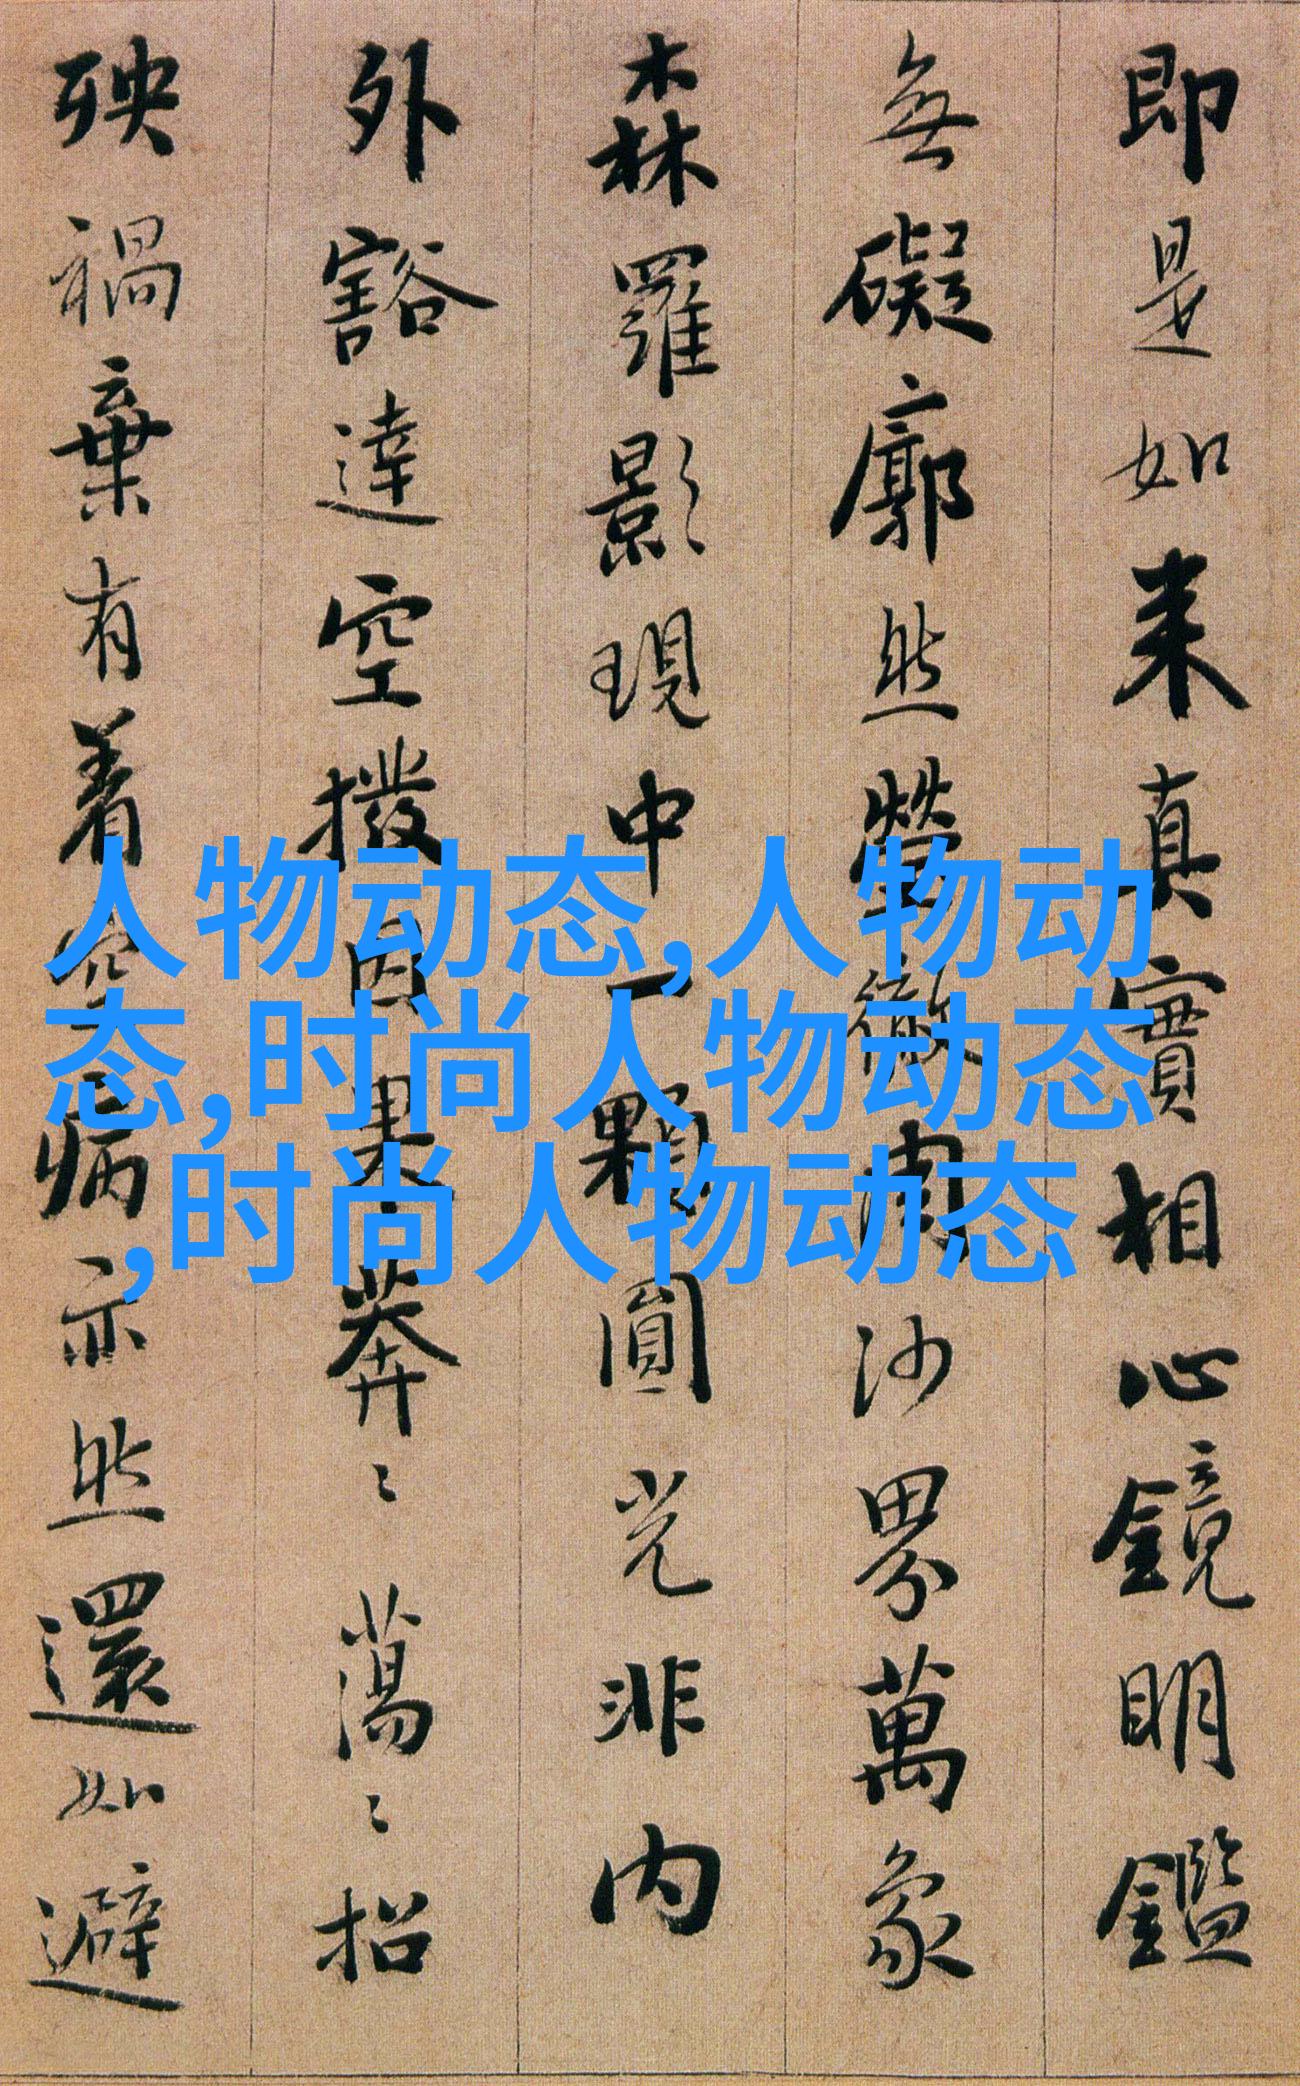 即是如来真實相心鏡明鑑
無礙廓然瑩徹周沙界萬象
森羅影現中一顆圓光非内
外豁達空撥因果莽〻蕩〻招
殃禍棄有着空病亦然還如避
人物动态,人物动
态,时尚人物动态
,时尚人物动态